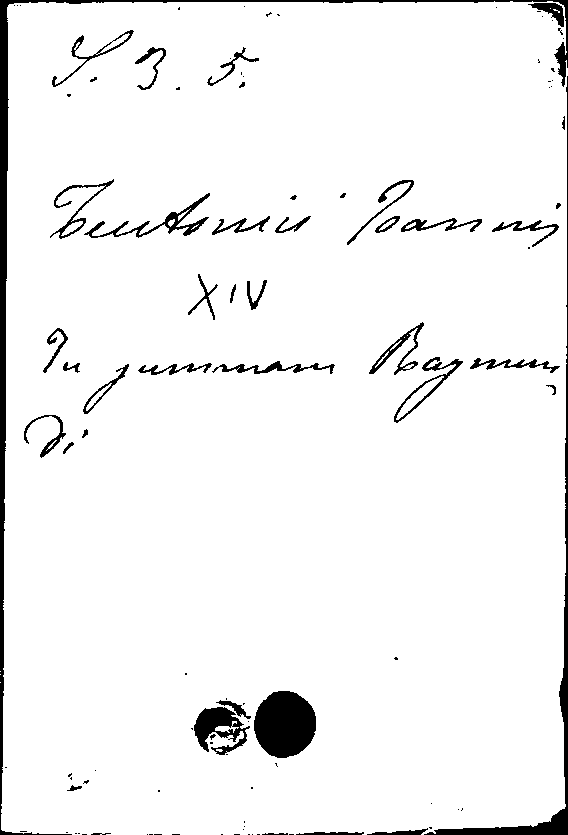 S. 3. 5.
Teutonici Ioannis
XIV
In summam Raymun,
di